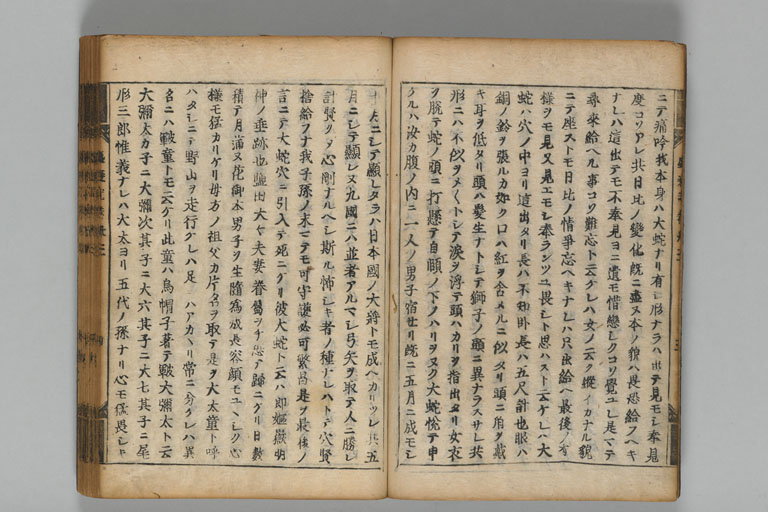 ニテ痛吟我本身ハ大蛇ナリ有シ形ナラハ出テ見モシ奉見
度コソアレ共日比ノ變化既ニ盡ヌ本ノ貌ハ畏恐給フヘキ
ナレハ這出テモ不奉見ヨニ遺モ惜戀シクコソ覺ユレ是マテ
尋來給ヘル事コソ難忘ト云ケレハ女ノ云ク縦イカナル貌
ニテ座ストモ日比ノ情爭忘ヘキナレハ只出給ヘ最後ノ有
様ヲモ見又見エモシ奉ランツユ畏シト思ハスト云ケレハ大
蛇穴ノ中ヨリ這出タリ長ハ不知臥長ハ五尺計也眼ハ
銅ノ鈴ヲ張ルカ如ク口ハ紅ヲ含メルニ似タリ頭ニ角ヲ戴
キ耳ヲ低タリ頭ハ髮生ナトシテ獅子ノ頭ニ異ナラスサレ共
形ニハ不似ヲメ〳〵トシテ涙ヲ浮テ頭ハカリヲ指出タリ女衣
ヲ脱テ蛇ノ頭ニ打懸テ自頤ノ下ノハリヲヌク大蛇悦テ申
ケルハ汝カ腹ノ内ニ一人ノ男子宿セリ既ニ五月ニ成モシ
十月ニシテ顯レタラハ日本國ノ大將トモ成ヘカリツレ共五
月ニシテ顯レヌ九國ニハ並者アルマシ弓矢ヲ取テ人ニ勝レ
計賢クシテ心剛ナルヘシ斯ル怖シキ者ノ種ナレハトテ穴賢
捨給フナ我子孫ノ末マテモ可守護必可繁昌是ヲ最後ノ
言ニテ大蛇穴ニ引入テ死ニケリ彼大蛇ト云ハ即嫗嶽明
神ノ垂跡也鹽田大夫妻眷屬ヲチ恐テ歸ニケリ日數
積テ月滿ヌ花御本男子ヲ生隨為成長容顔モユヽシク心
様モ猛カリケリ母方ノ祖父カ片名ヲ取テ是ヲ大太童ト呼
ハタシニテ野山ヲ走行クレハ足ニハアカヽリ常ニ分ケレハ異
名ニハ皸童トモ云ケリ此童ハ烏帽子著テ皸大彌太ト云
大彌太カ子ニ大彌次其子ニ大六其子ニ大七其子ニ尾
形三郎惟義ナレハ大太ヨリ五代ノ孫ナリ心モ猛畏シキ